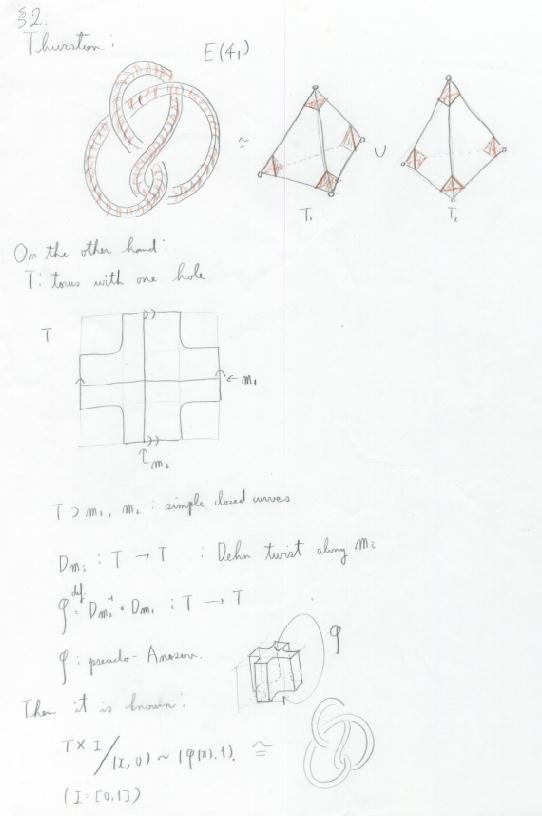 §2.
Thurston:
E(4₁)
≃
∪
T₁
T₂
On the other hand:
T: torus with one hole
T
← m₁
m₂
T ⊃ m₁, m₂ : simple closed curves
Dmᵢ : T → T : Dehn twist along mᵢ
φ def= Dm₂⁻¹ ∘ Dm₁ : T → T
φ
φ : pseudo-Anosov.
Then it is known:
T × I / (x, 0) ~ (φ(x), 1). ≅
(I = [0,1])